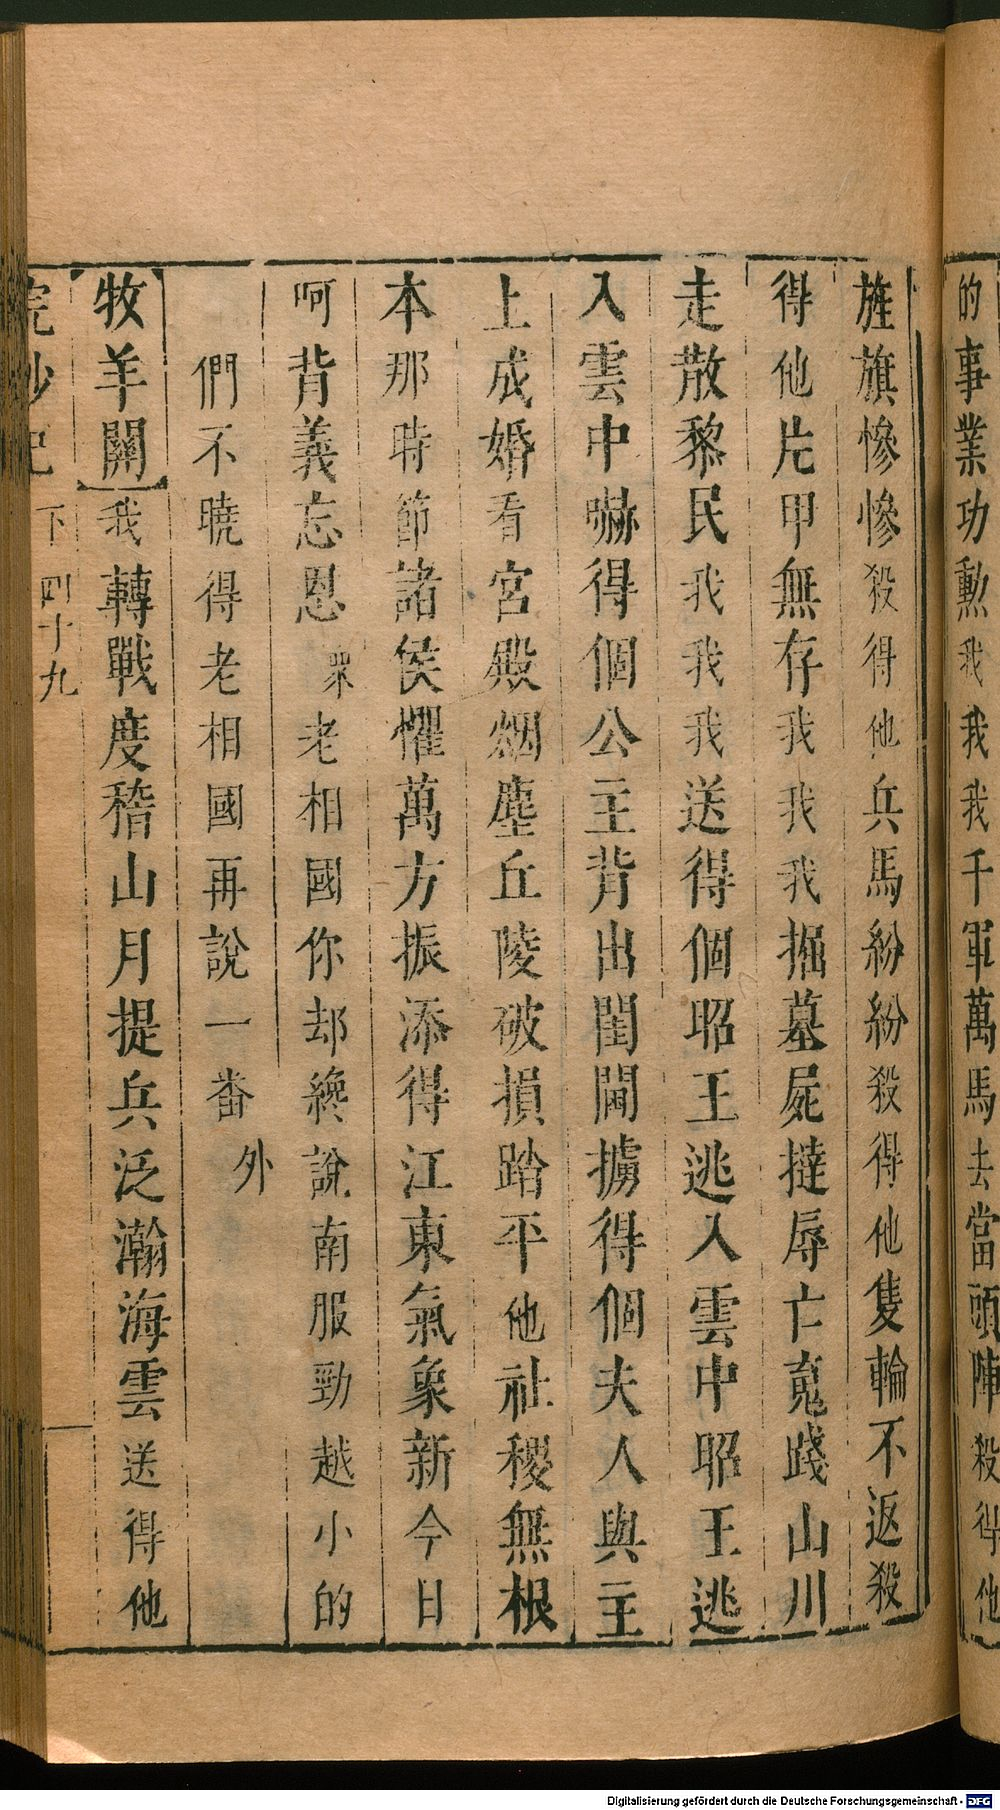 的事業功勲我我我千軍萬馬去當頭陣殺得他
旌旗慘慘殺得他兵馬紛紛殺得他隻輪不返殺
得他片甲無存我我我掘墓屍撻辱亡䰟踐山川
走散黎民我我我送得個昭王逃入雲中昭王逃
入雲中嚇得個公主背出閨閫擄得個夫人與主
上成婚看宮殿烟塵丘陵破損踏平他社稷無根
本那時節諸侯懼萬方振添得江東氣象新今日
呵背義忘恩衆老相國你却纔說南服勁越小的
們不曉得老相國再說一番外
牧羊關我轉戰度稽山月提兵泛瀚海雲送得他
浣紗記 下 四十九
Digitalisierung gefördert durch die Deutsche Forschungsgemeinschaft - DFG